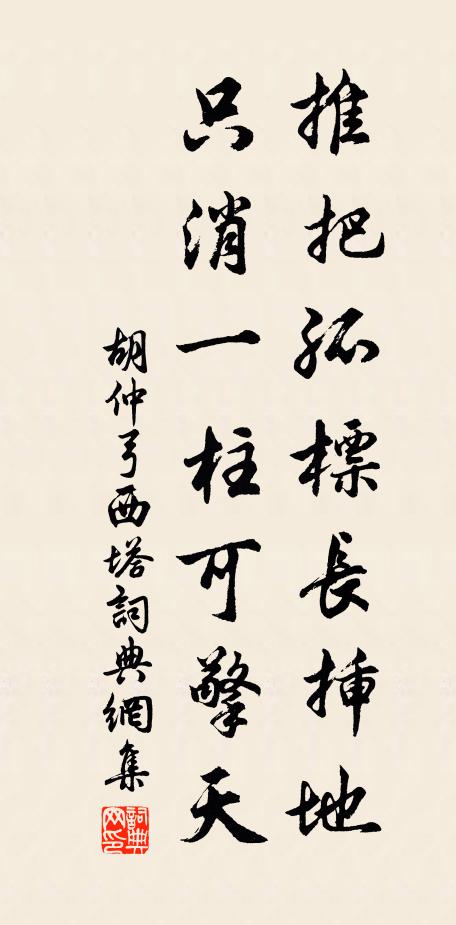 推把孤標長揷地
只消一柱可擎天
胡仲弓西塔詞典網集
詞典網印